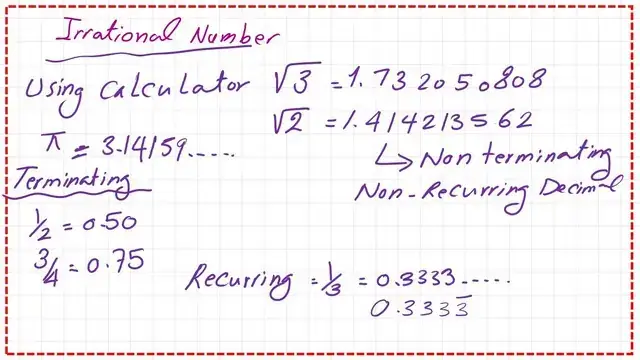 Irrational Number
Using Calculator √3 = 1.732050808
√2 = 1.414213562
π = 3.14159.....
↳ Non terminating
Non-Recurring Decimal
Terminating
1/2 = 0.50
3/4 = 0.75
Recurring = 1/3 = 0.3333.....
0.3333̅